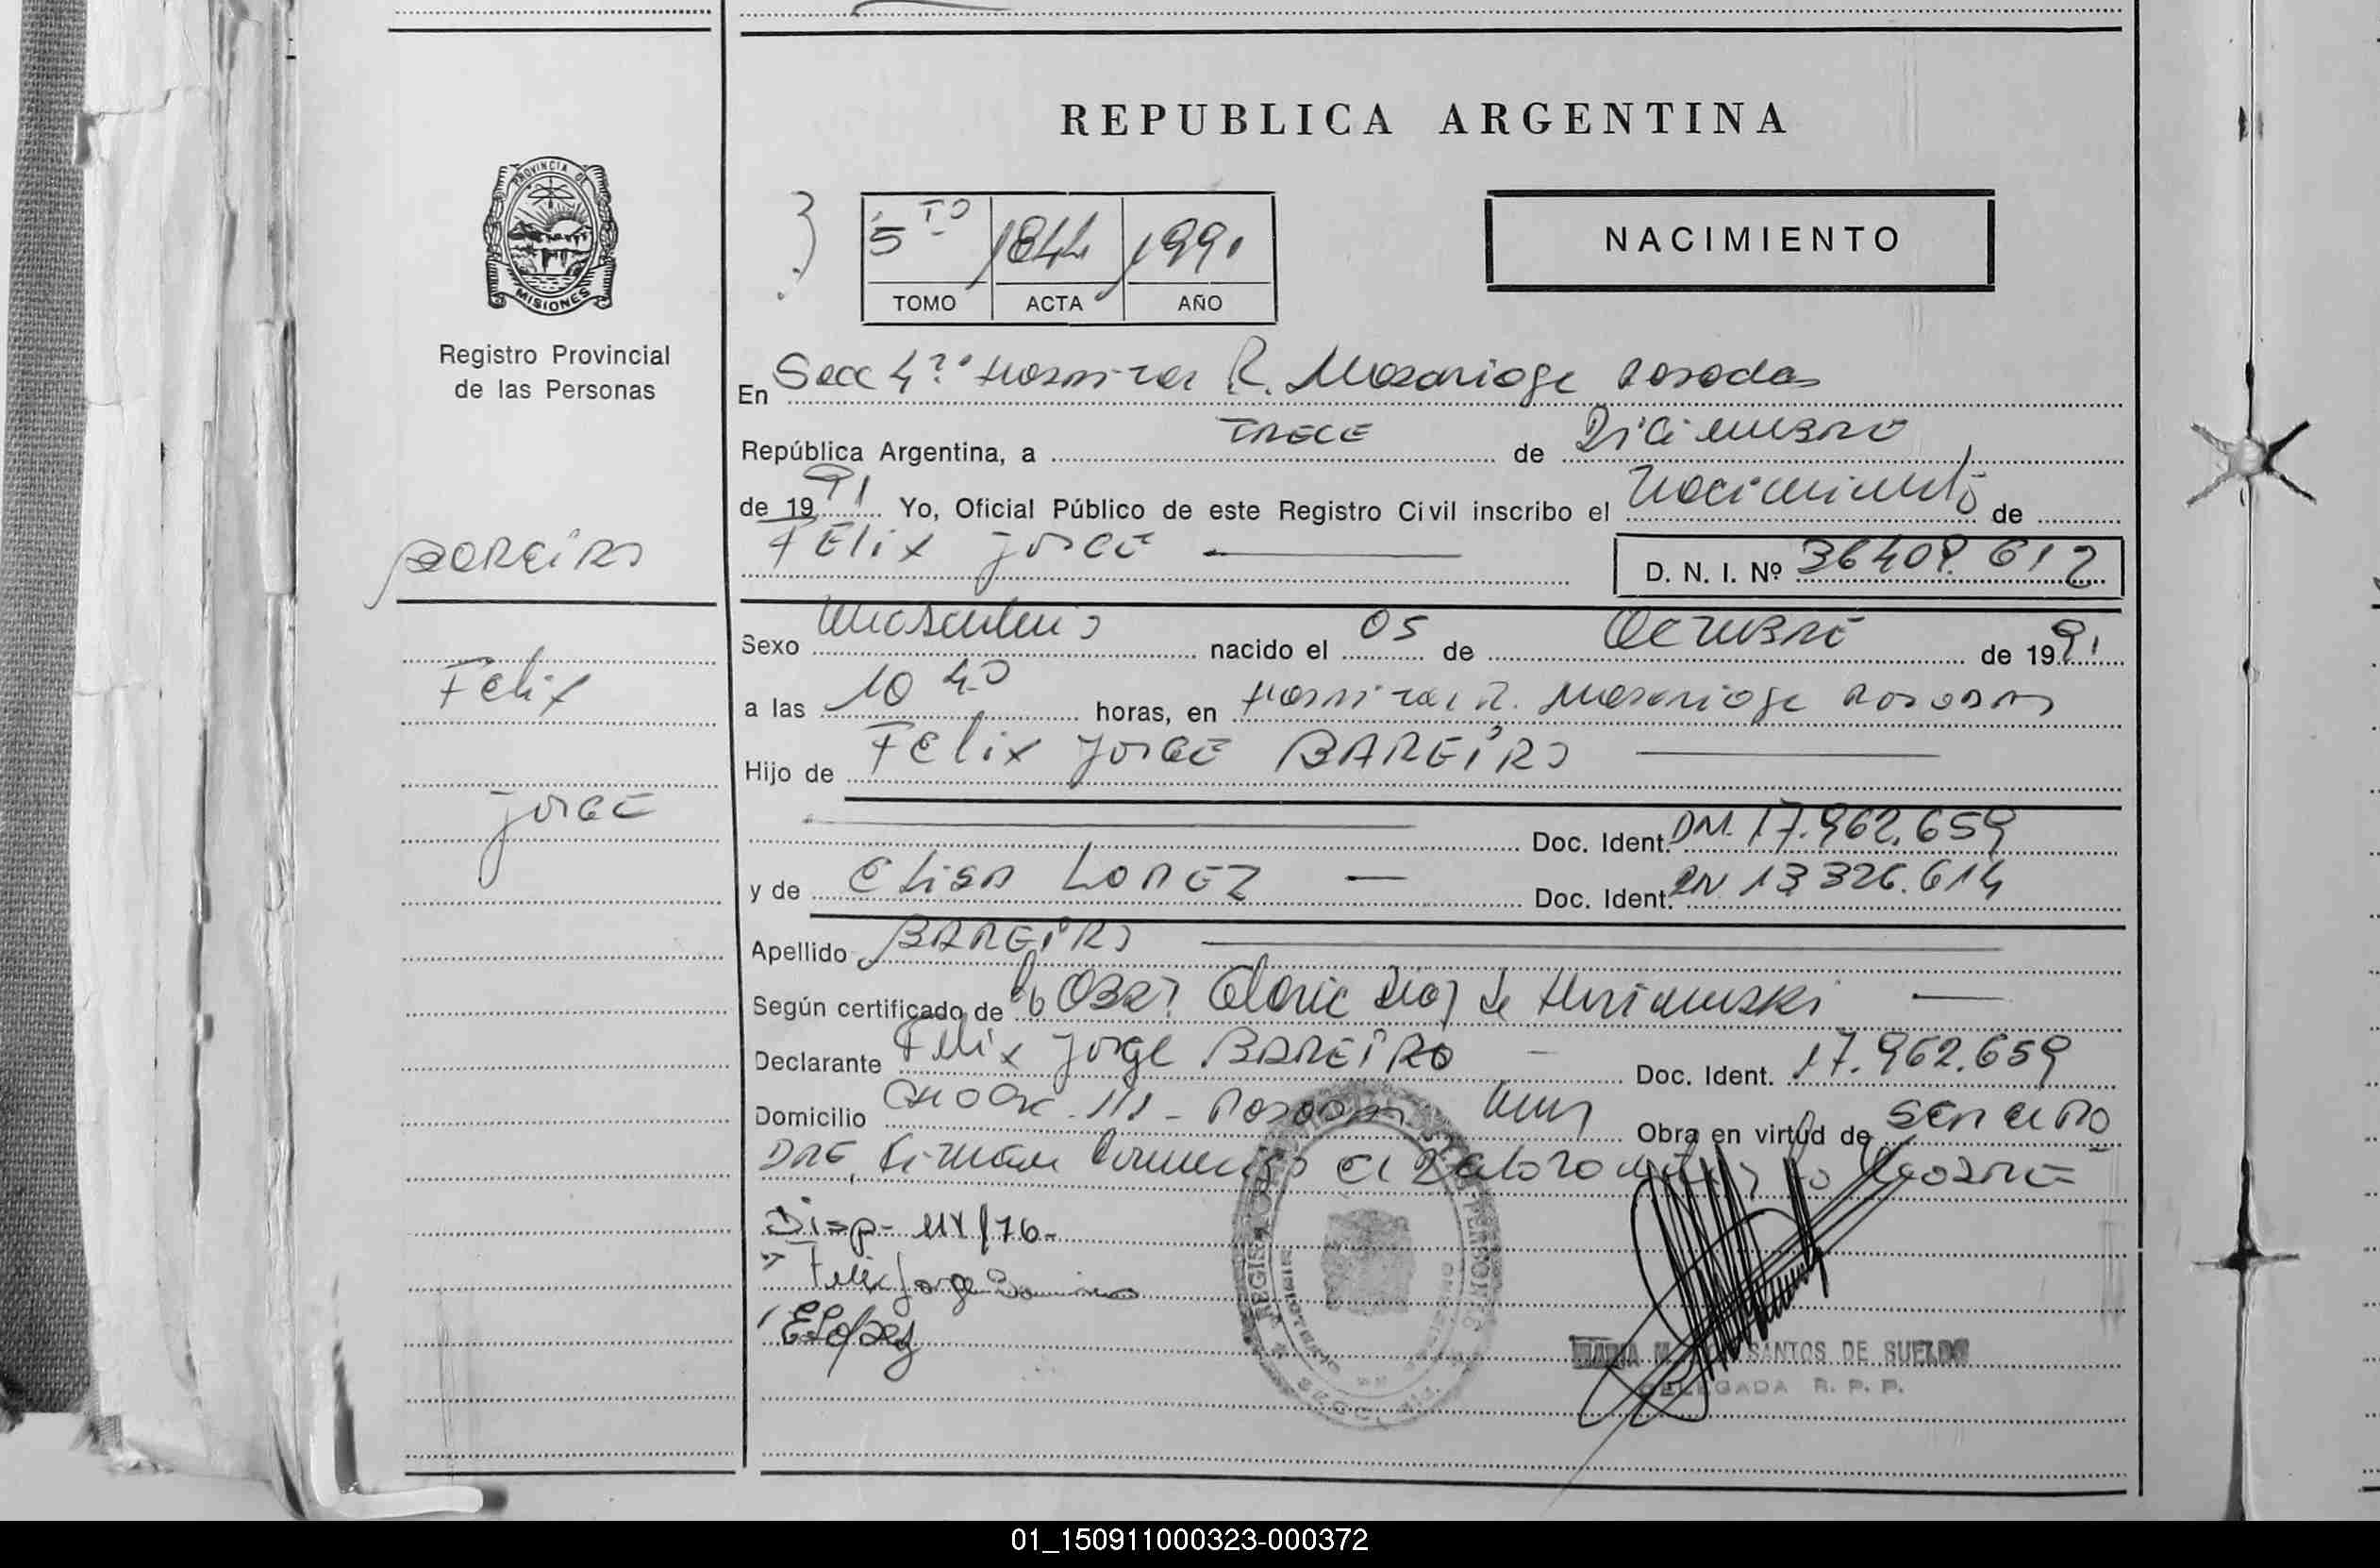 REPUBLICA ARGENTINA
PROVINCIA DE
MISIONES
Registro Provincial
de las Personas
5 TO 1844 1991
TOMO ACTA AÑO
NACIMIENTO
En Secc 4ª Hospital R. Madariaga Posadas
República Argentina, a TRECE de Diciembre
de 1991 Yo, Oficial Público de este Registro Civil inscribo el nacimiento de
BAREIRO
FELIX JORGE
D. N. I. Nº 36409.612
Sexo Masculino nacido el 05 de OCTUBRE de 1991
Felix
a las 10 40 horas, en Hospital R. Madariaga POSADAS
Hijo de FELIX JORGE BAREIRO
JORGE
Doc. Ident. DNI. 17.962.659
y de ELISA LOPEZ Doc. Ident. DNI 13 326.614
Apellido BAREIRO
Según certificado de Obst Gloria Diaz de
Declarante Felix Jorge BAREIRO Doc. Ident. 17.962.659
Domicilio 111 - POSADAS Obra en virtud de SER EL PA
DRE, Firman la MADRE
Disp- /76-
Felix Jorge Bareiro
ELopez
SANTOS DE SUELDO
DELEGADA R. P. P.
01_150911000323-000372